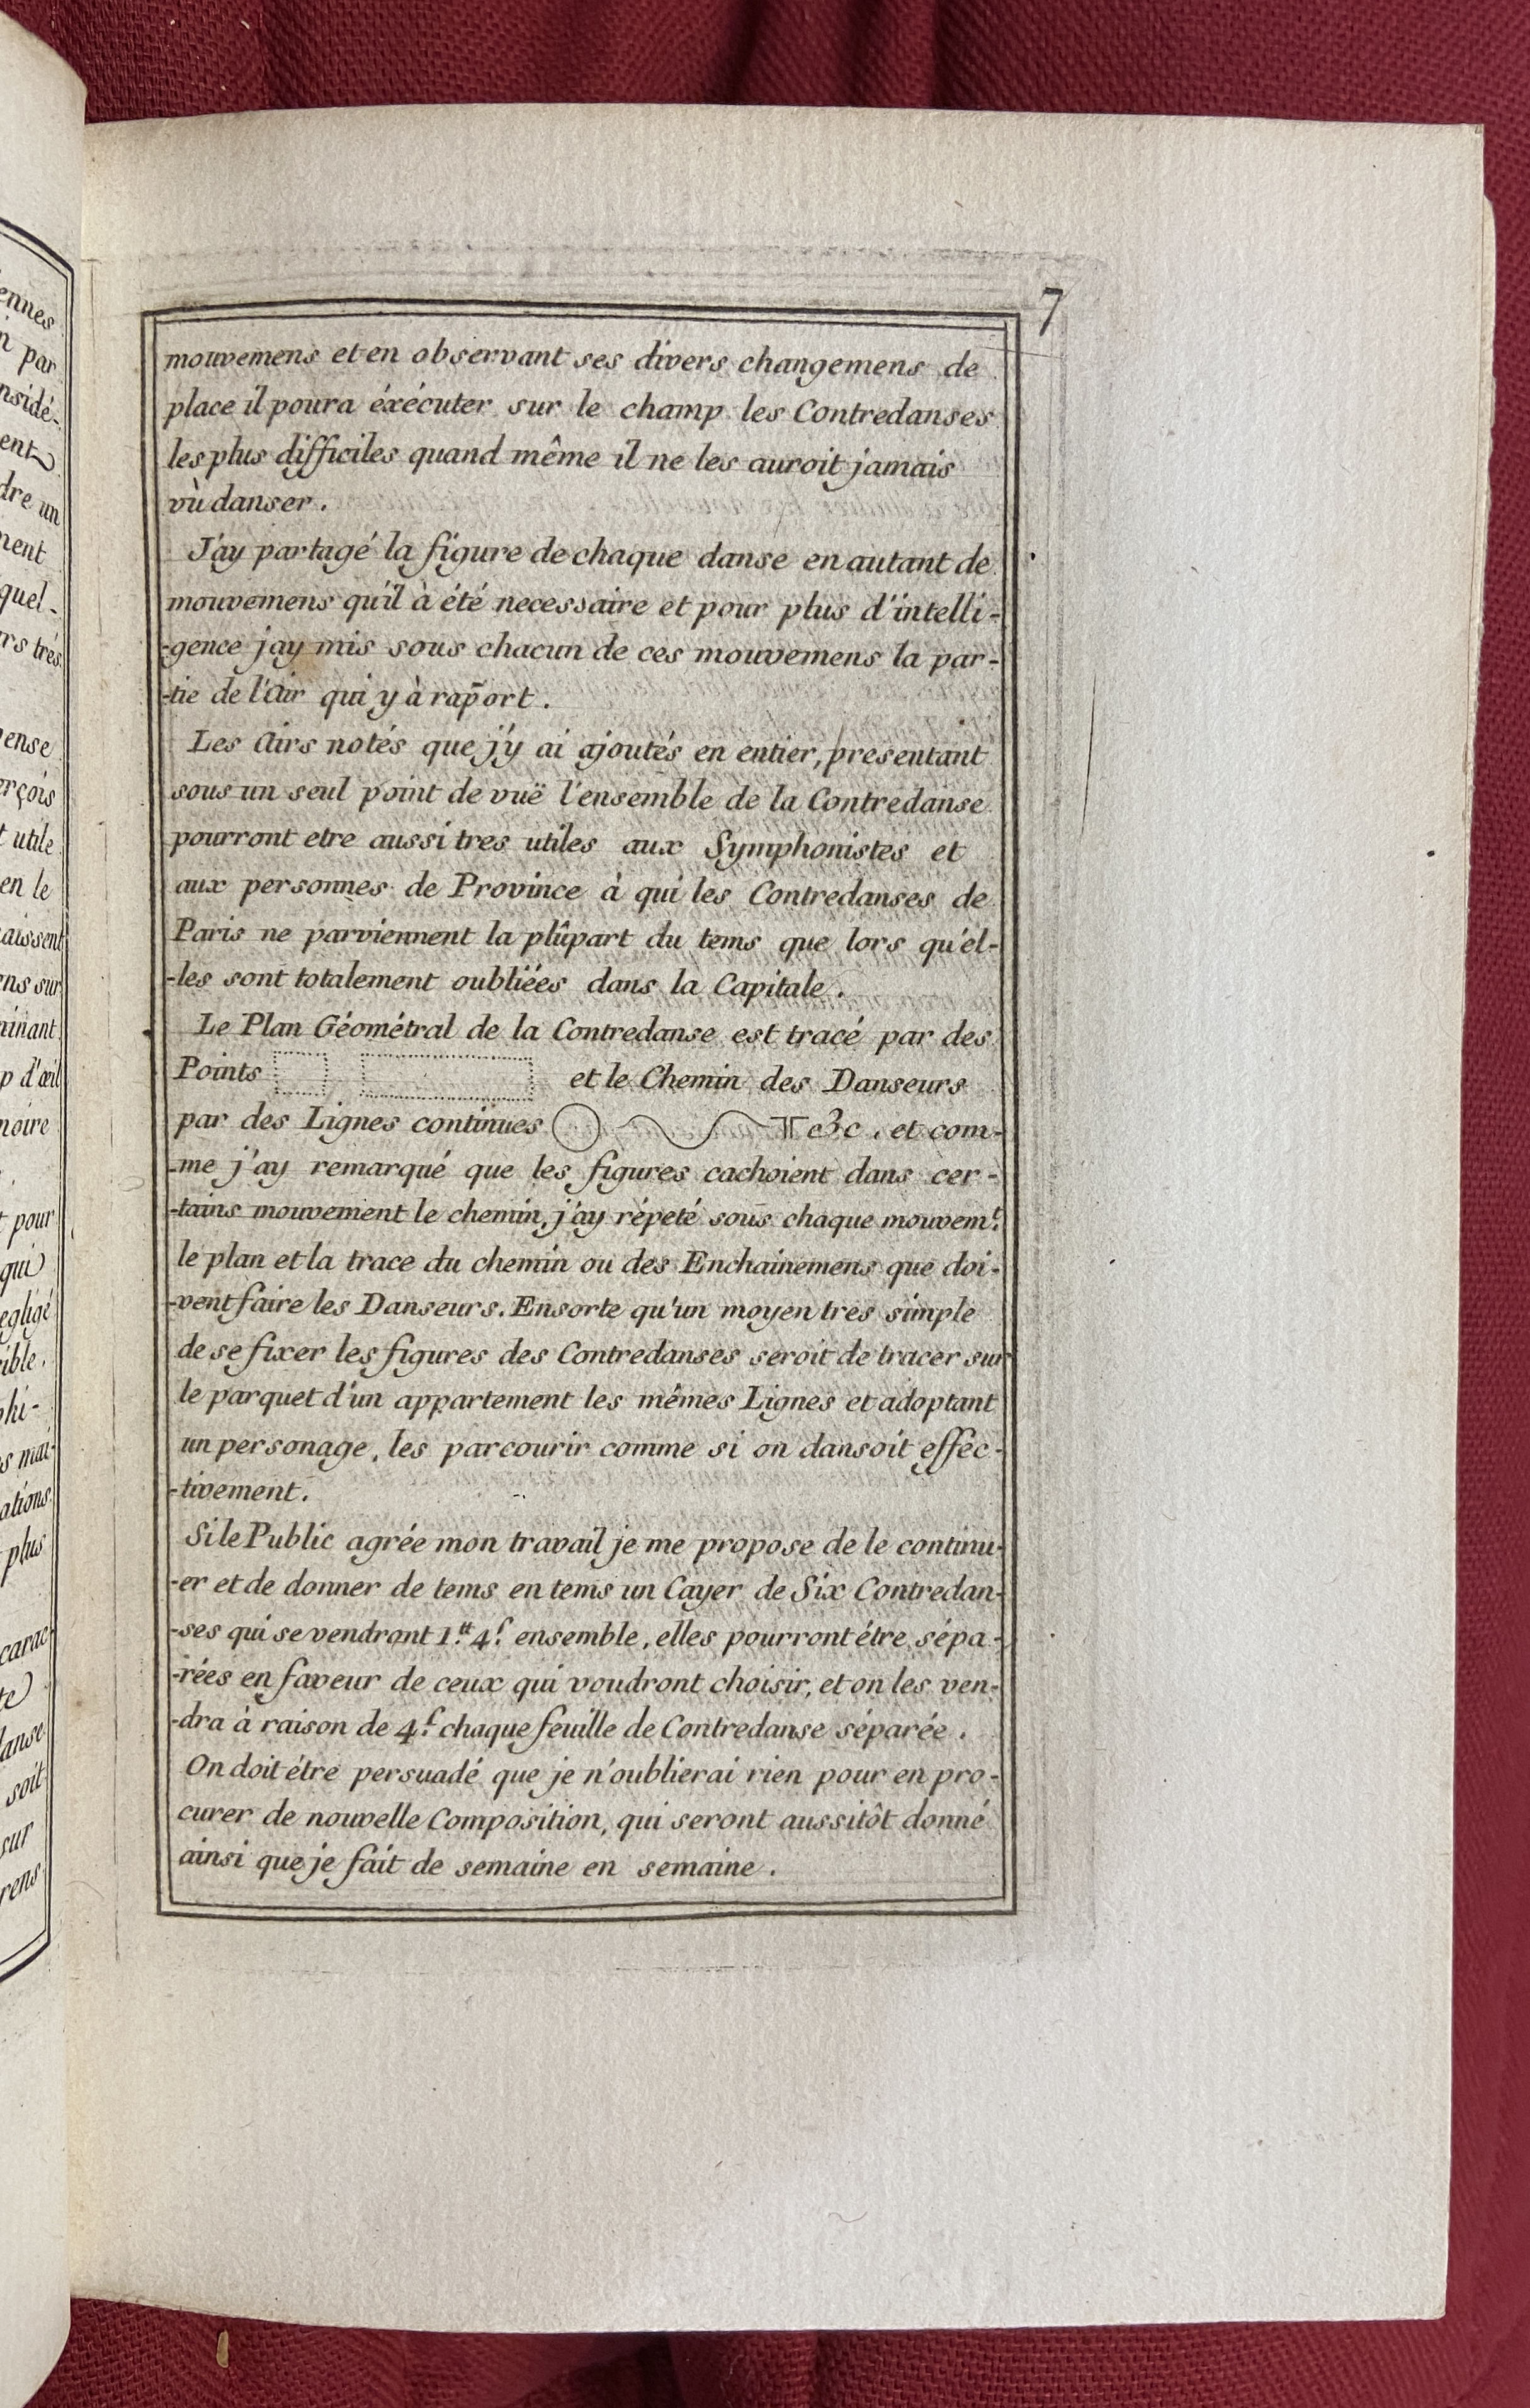 7
mouvemens et en observant ses divers changemens de
place il poura éxécuter sur le champ les Contredanses
les plus difficiles quand même il ne les auroit jamais
vù danser.
J'ay partagé la figure de chaque danse en autant de
mouvemens qu'il à été necessaire et pour plus d'intelli-
-gence j'ay mis sous chacun de ces mouvemens la par-
-tie de l'Air qui y à rap̃ort.
Les Airs notés que j'y ai ajoutés en entier, presentant
sous un seul point de vuë l'ensemble de la Contredanse
pourront etre aussi tres utiles aux Symphonistes et
aux personnes de Province à qui les Contredanses de
Paris ne parviennent la plûpart du tems que lors qu'el-
-les sont totalement oubliées dans la Capitale.
Le Plan Géométral de la Contredanse est tracé par des
Points et le Chemin des Danseurs
par des Lignes continues &c. et com-
-me j'ay remarqué que les figures cachoient dans cer-
-tains mouvement le chemin, j'ay répeté sous chaque mouvem.t
le plan et la trace du chemin ou des Enchainemens que doi-
-vent faire les Danseurs. Ensorte qu'un moyen tres simple
de se fixer les figures des Contredanses seroit de tracer sur
le parquet d'un appartement les mêmes Lignes et adoptant
un personage, les parcourir comme si on dansoit effec-
-tivement.
Si le Public agrée mon travail je me propose de le continu-
-er et de donner de tems en tems un Cayer de Six Contredan-
-ses qui se vendront 1.tt 4.s ensemble, elles pourront étre sépa-
-rées en faveur de ceux qui voudront choisir, et on les ven-
-dra à raison de 4.s chaque feuille de Contredanse séparée.
On doit étre persuadé que je n'oublierai rien pour en pro-
curer de nouvelle Composition, qui seront aussitôt donné
ainsi que je fait de semaine en semaine.